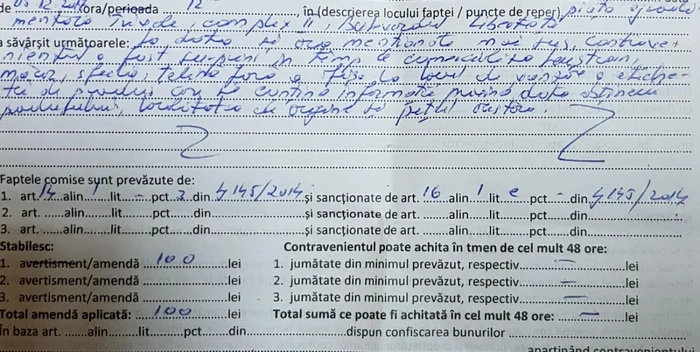 de 05 12 2017 ora/perioada 12 în (descrierea locului faptei / puncte de reper) piața
complex II, Bulevardul Libertății
a săvârșit următoarele: la data și ora menționate mai sus, contrave
nientul a fost surprins în timp ce comercializa
țelină fără a afișa la locul de vânzare o etiche-
tă de produs care să conțină informații privind data obținerii
produsului, localitatea de origine și prețul
Faptele comise sunt prevăzute de:
1. art. 14 alin. 1 lit. – pct. din L 145/2014 și sancționate de art. 16 alin. 1 lit. e pct. – din L 145/2014
2. art. ......alin......lit......pct......din..................și sancționate de art. ......alin......lit......pct......din..................
3. art. ......alin......lit......pct......din..................și sancționate de art. ......alin......lit......pct......din..................
Stabilesc: Contravenientul poate achita în tmen de cel mult 48 ore:
1. avertisment/amendă 100 lei 1. jumătate din minimul prevăzut, respectiv – lei
2. avertisment/amendă ..................lei 2. jumătate din minimul prevăzut, respectiv – lei
3. avertisment/amendă ..................lei 3. jumătate din minimul prevăzut, respectiv – lei
Total amendă aplicată: 100 lei Total sumă ce poate fi achitată în cel mult 48 ore: – lei
în baza art. ......alin......lit......pct......din..................dispun confiscarea bunurilor ..................
aparținând contravenientului